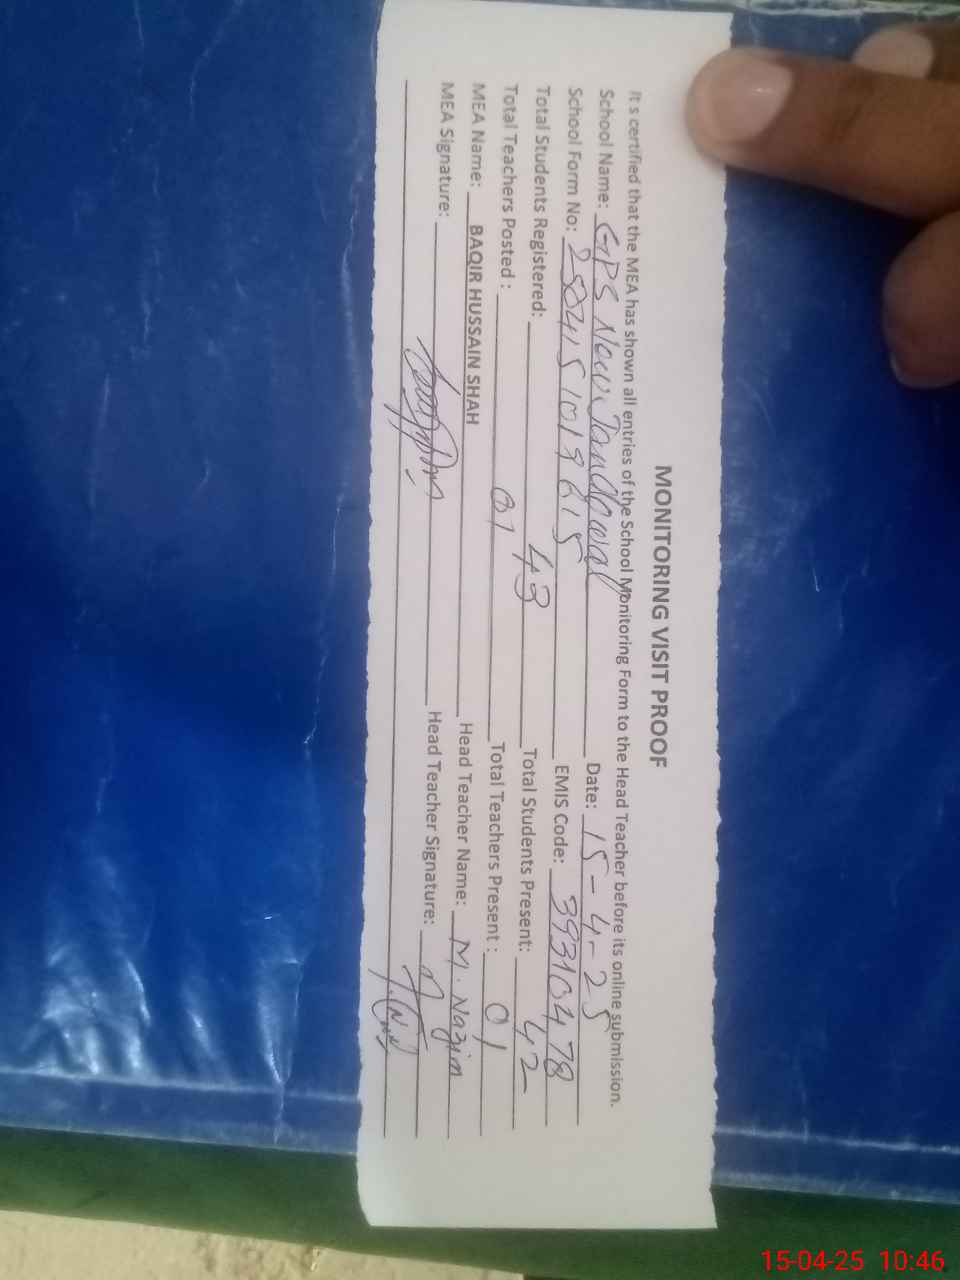 MONITORING VISIT PROOF
It s certified that the MEA has shown all entries of the School Monitoring Form to the Head Teacher before its online submission.
School Name: GPS New Jandowal Date: 15-4-25
School Form No: 2504151018615 EMIS Code: 39310478
Total Students Registered: 43 Total Students Present: 42
Total Teachers Posted : 01 Total Teachers Present : 01
MEA Name: BAQIR HUSSAIN SHAH Head Teacher Name: M. Nazim
MEA Signature: Head Teacher Signature:
15-04-25 10:46